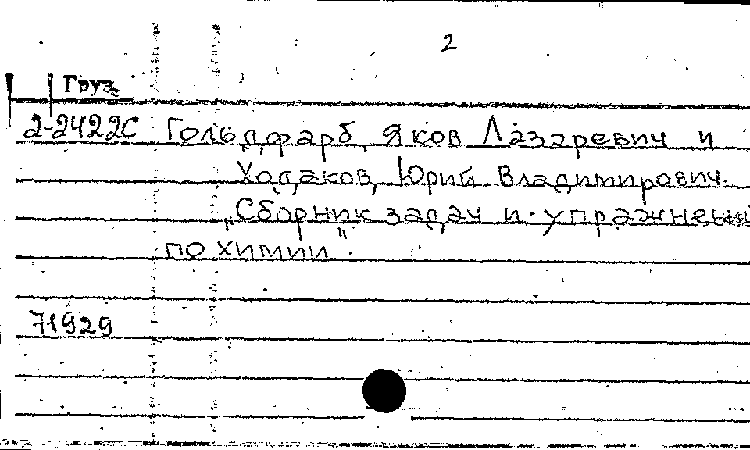 2
Груз
2-2422С Гольдфарб, Яков Лазаревич и
Ходаков, Юрий Владимирович.
„Сборник задач и упражнений
по химии".
71929